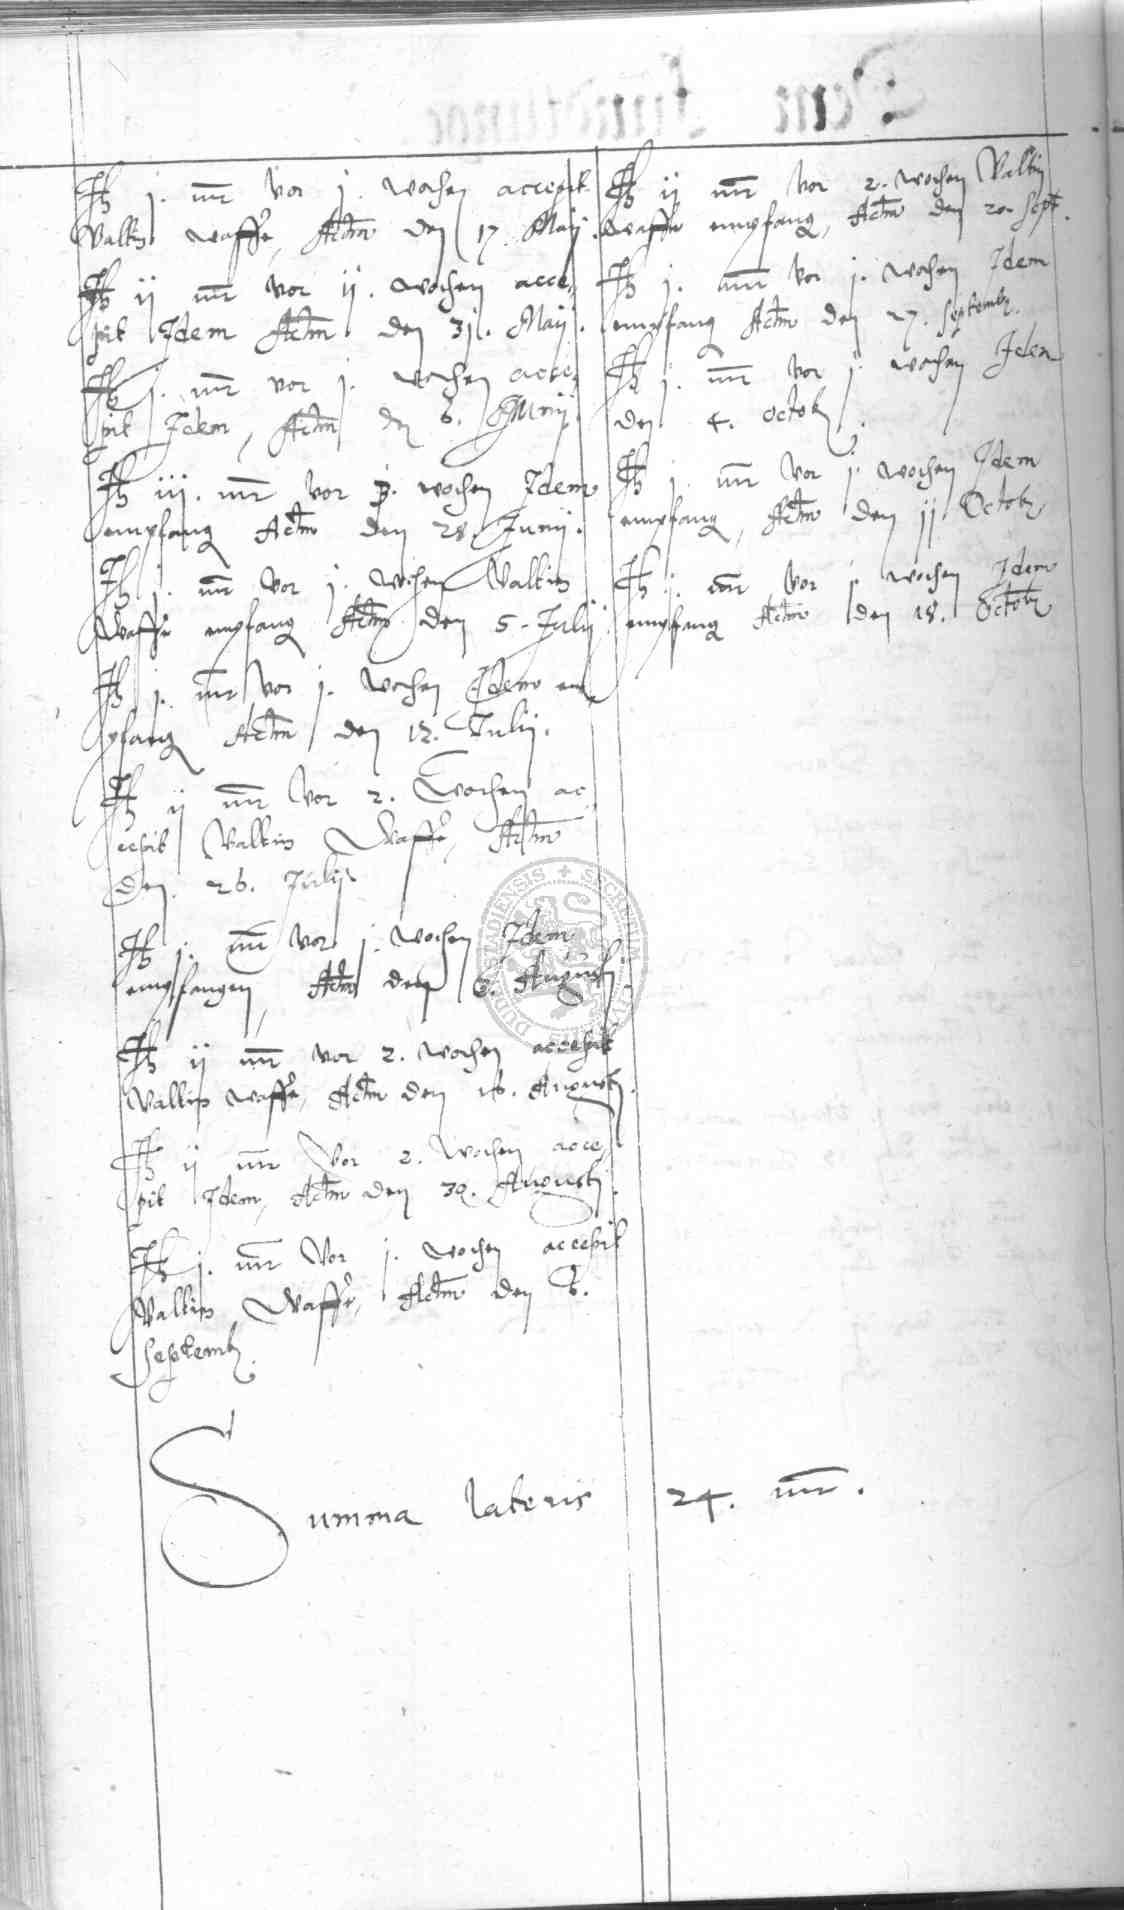 It j. mr vor j. wochen accepit
Valtin Waffer, Actm den 17 Maij.
It ij mr vor ij. wochen acce,
pit Idem Actm den 31. Maij.
It j. mr vor j. wochen acce,
pit Idem, Actm den 6.
It iij. mr vor 3. wochen Idem
empfang Actm den 28 Junij.
It j. mr vor j. wochen Valtin
Waffer empfang Actm den 5. Julij
It j. mr vor j. wochen Idem em
pfang Actm den 12. Julij.
It ij mr vor 2. Wochen ac,
cepit Valtin Waffer, Actm
den 26. Julij
It j. mr vor j. wochen Idem
empfangen, Actm den 6. Augusti
It ij mr vor 2. wochen accepit
Valtin Waffer, Actm den 16. Augusti.
It ij mr vor 2. wochen acce,
pit Idem, Actm den 30. Augusti.
It j. mr vor j. wochen accepit
Valtin Waffer, Actm den 6.
Septemb.
It ij mr vor 2. wochen Valtin
Waffer empfang, Actm den 20. Sept.
It j. mr vor j. wochen Idem
empfang Actm den 27. Septemb.
It j. mr vor j. wochen Idem
den 4. octob.
It j. mr vor j. wochen Idem
empfang, Actm den 11 Octob.
It j. mr vor j wochen Idem
empfang Actm den 18. Octob
Summa lateris 24. mr.
SECRETUM CIVITATIS DUDERSTADIENSIS